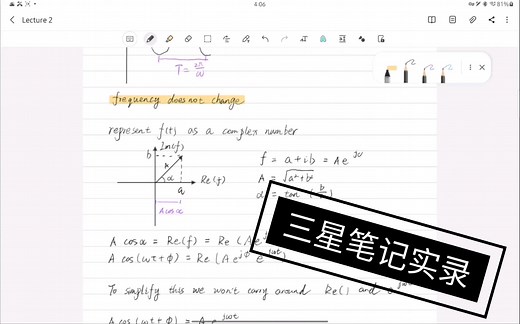 4:06
81%
Lecture 2
T = 2π/ω
frequency does not change
represent f(t) as a complex number
Im(f)
b
A
α
Re(f)
a
A cos α
f = a + ib = A e^jα
A = √a²+b²
α = tan
A cos α = Re(f) = Re (A e
A cos (ωt + ϕ) = Re (A e^jϕ e^jωt)
To simplify this we won't carry around Re( ) and e^jωt
A cos (ωt + ϕ) = A e^jωt
三星笔记实录